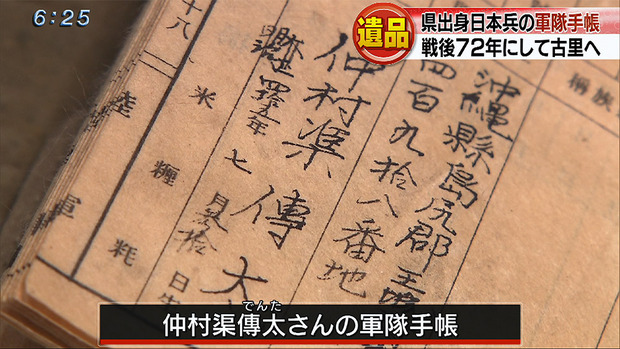 6:25
遺品
県出身日本兵の軍隊手帳
戦後72年にして古里へ
沖縄縣島尻郡
四百九拾八番地
仲村渠傳太
四拾五年七月 拾日
十八 米 纏 粍
でんた
仲村渠傳太さんの軍隊手帳